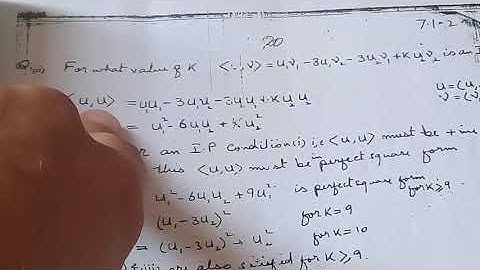 7.1-2
20
For what value of K <u,v> = u₁v₁ - 3u₁v₂ - 3u₂v₁ + K u₂v₂ is an I
<u,u> = u₁u₁ - 3u₁u₂ - 3u₁u₂ + K u₂u₂ u = (u₁
= u₁² - 6u₁u₂ + K u₂² v = (v₁
an I.P Condition(i) i,e <u,u> must be +ive
this <u,u> must be in perfect square form
u₁² - 6u₁u₂ + 9u₂² is perfect square form
(u₁ - 3u₂)² for K = 9 for K ≥ 9
= (u₁ - 3u₂)² + u₂² for K = 10
are also satisfied for K ≥ 9.